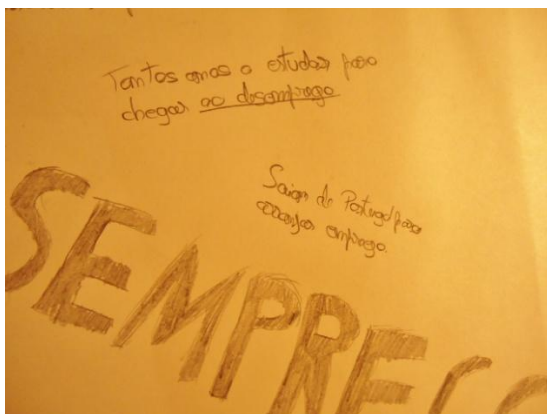 Tantos anos a estudar para
chegar ao desemprego
Saiam de Portugal para
arranjar emprego.
SEMPREG